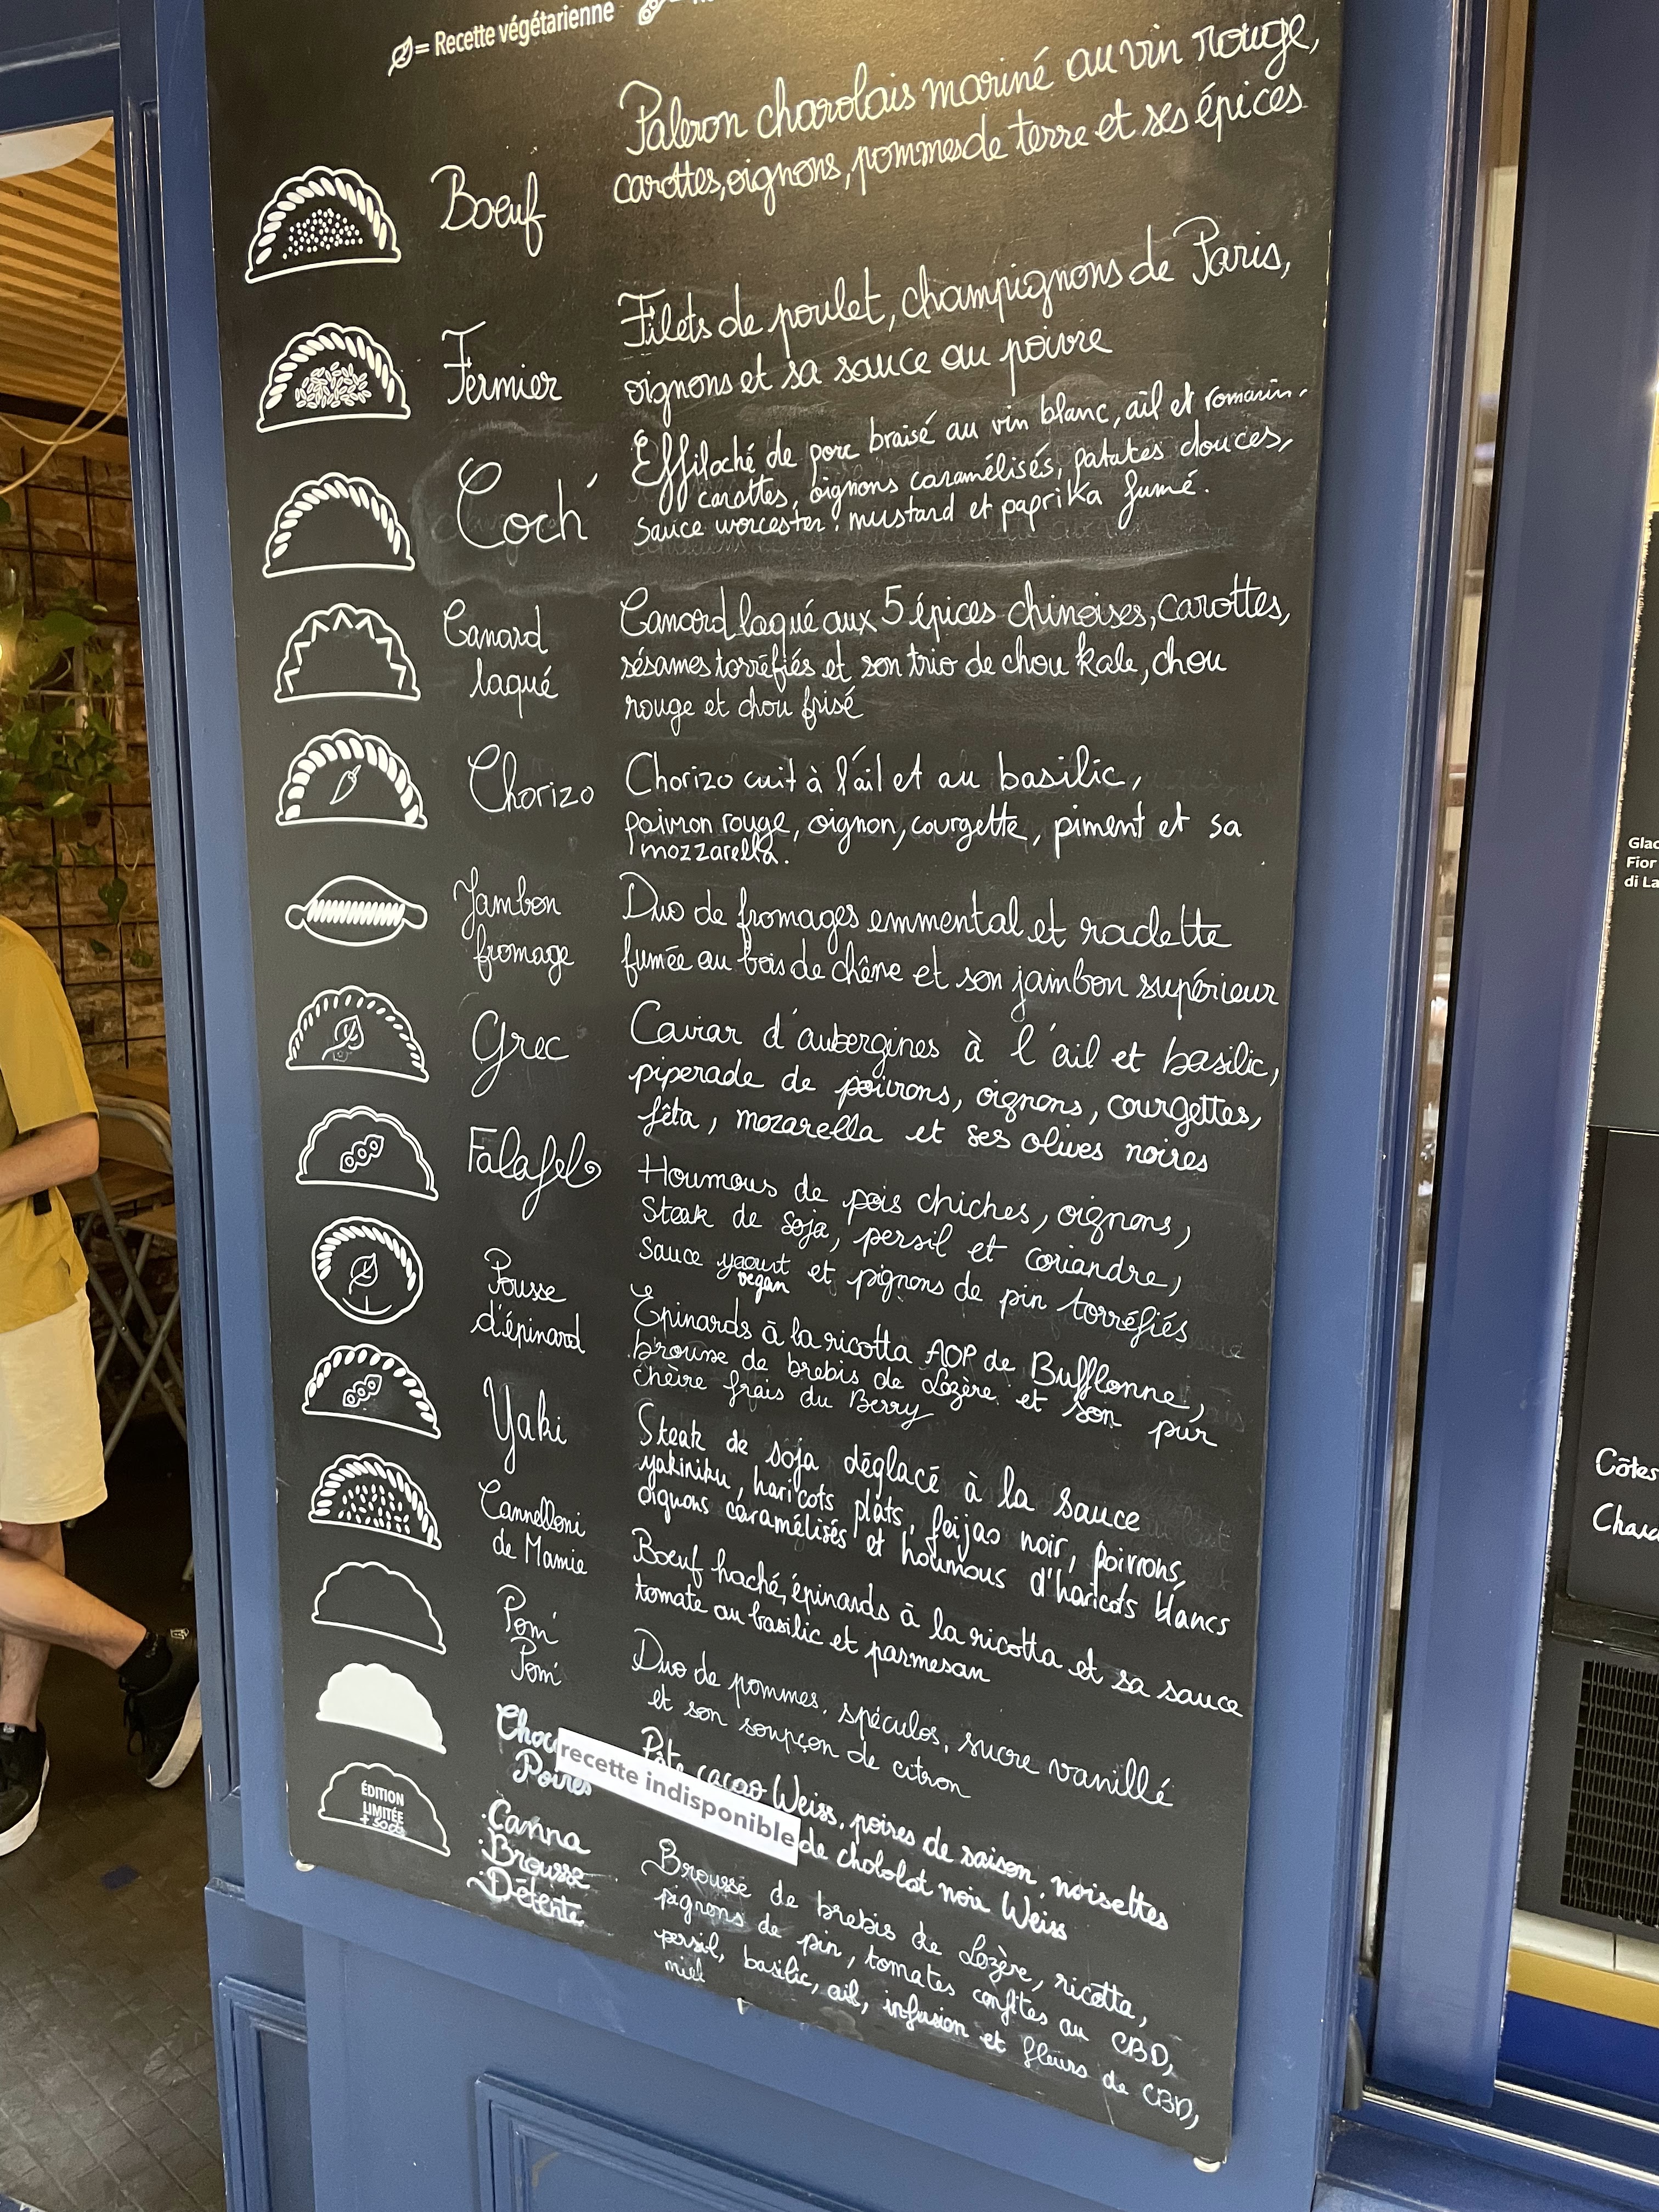 = Recette végétarienne
Boeuf
Paleron charolais mariné au vin rouge,
carottes, oignons, pommes de terre et ses épices
Fermier
Filets de poulet, champignons de Paris,
oignons et sa sauce au poivre
Coch'
Effiloché de porc braisé au vin blanc, ail et romarin.
carottes, oignons caramélisés, patates douces,
sauce worcester, mustard et paprika fumé.
Canard
laqué
Canard laqué aux 5 épices chinoises, carottes,
sésames torréfiés et son trio de chou kale, chou
rouge et chou frisé
Chorizo
Chorizo cuit à l'ail et au basilic,
poivron rouge, oignon, courgette, piment et sa
mozzarella.
Jambon
fromage
Duo de fromages emmental et raclette
fumée au bois de chêne et son jambon supérieur
Grec
Caviar d'aubergines à l'ail et basilic,
piperade de poivrons, oignons, courgettes,
fêta, mozarella et ses olives noires
Falafel
Houmous de pois chiches, oignons,
Steak de soja, persil et coriandre,
sauce yaourt et pignons de pin torréfiés
vegan
Pousse
d'épinard
Épinards à la ricotta AOP de Bufflonne,
brousse de brebis de Lozère et son pur
chèvre frais du Berry
Yaki
Steak de soja déglacé à la sauce
yakiniku, haricots plats, feijao noir, poivrons,
oignons caramélisés et houmous d'haricots blancs
Cannelloni
de Mamie
Boeuf haché, épinards à la ricotta et sa sauce
tomate au basilic et parmesan
Pom'
Pom'
Duo de pommes, spéculos, sucre vanillé
et son soupçon de citron
Choco
Poires
recette indisponible
Pâte cacao Weiss, poires de saison, noisettes
de chololat noir Weiss
ÉDITION
LIMITÉE
Canna
Brousse
Détente
Brousse de brebis de Lozère, ricotta,
pignons de pin, tomates confites au CBD,
persil, basilic, ail, infusion et fleurs de CBD,
miel
Glac
Fior
di La
Côtes